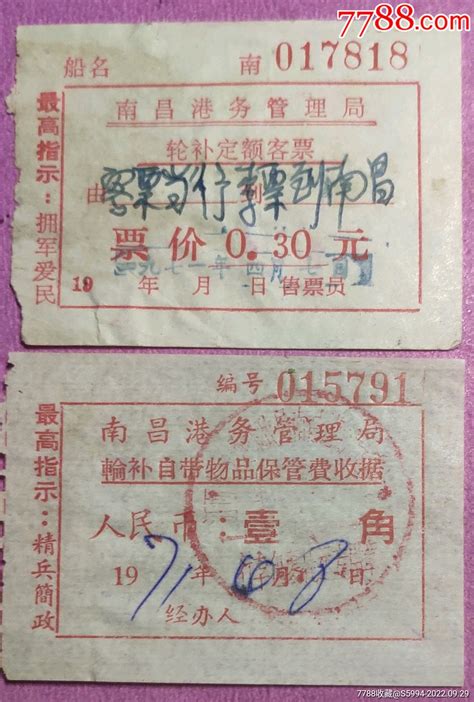 7788.com
船名 南 017818
南昌港务管理局
轮补定额客票
由 到
票到南昌
票价 0.30 元
一九七一年四月七日
19 年 月 日 售票员
最高指示：拥军爱民
编号 015791
南昌港务管理局
輪补自带物品保管費收据
人民币：壹 角
1971年10月8日
经办人
最高指示：精兵簡政
7788收藏@S5994-2022.09.29